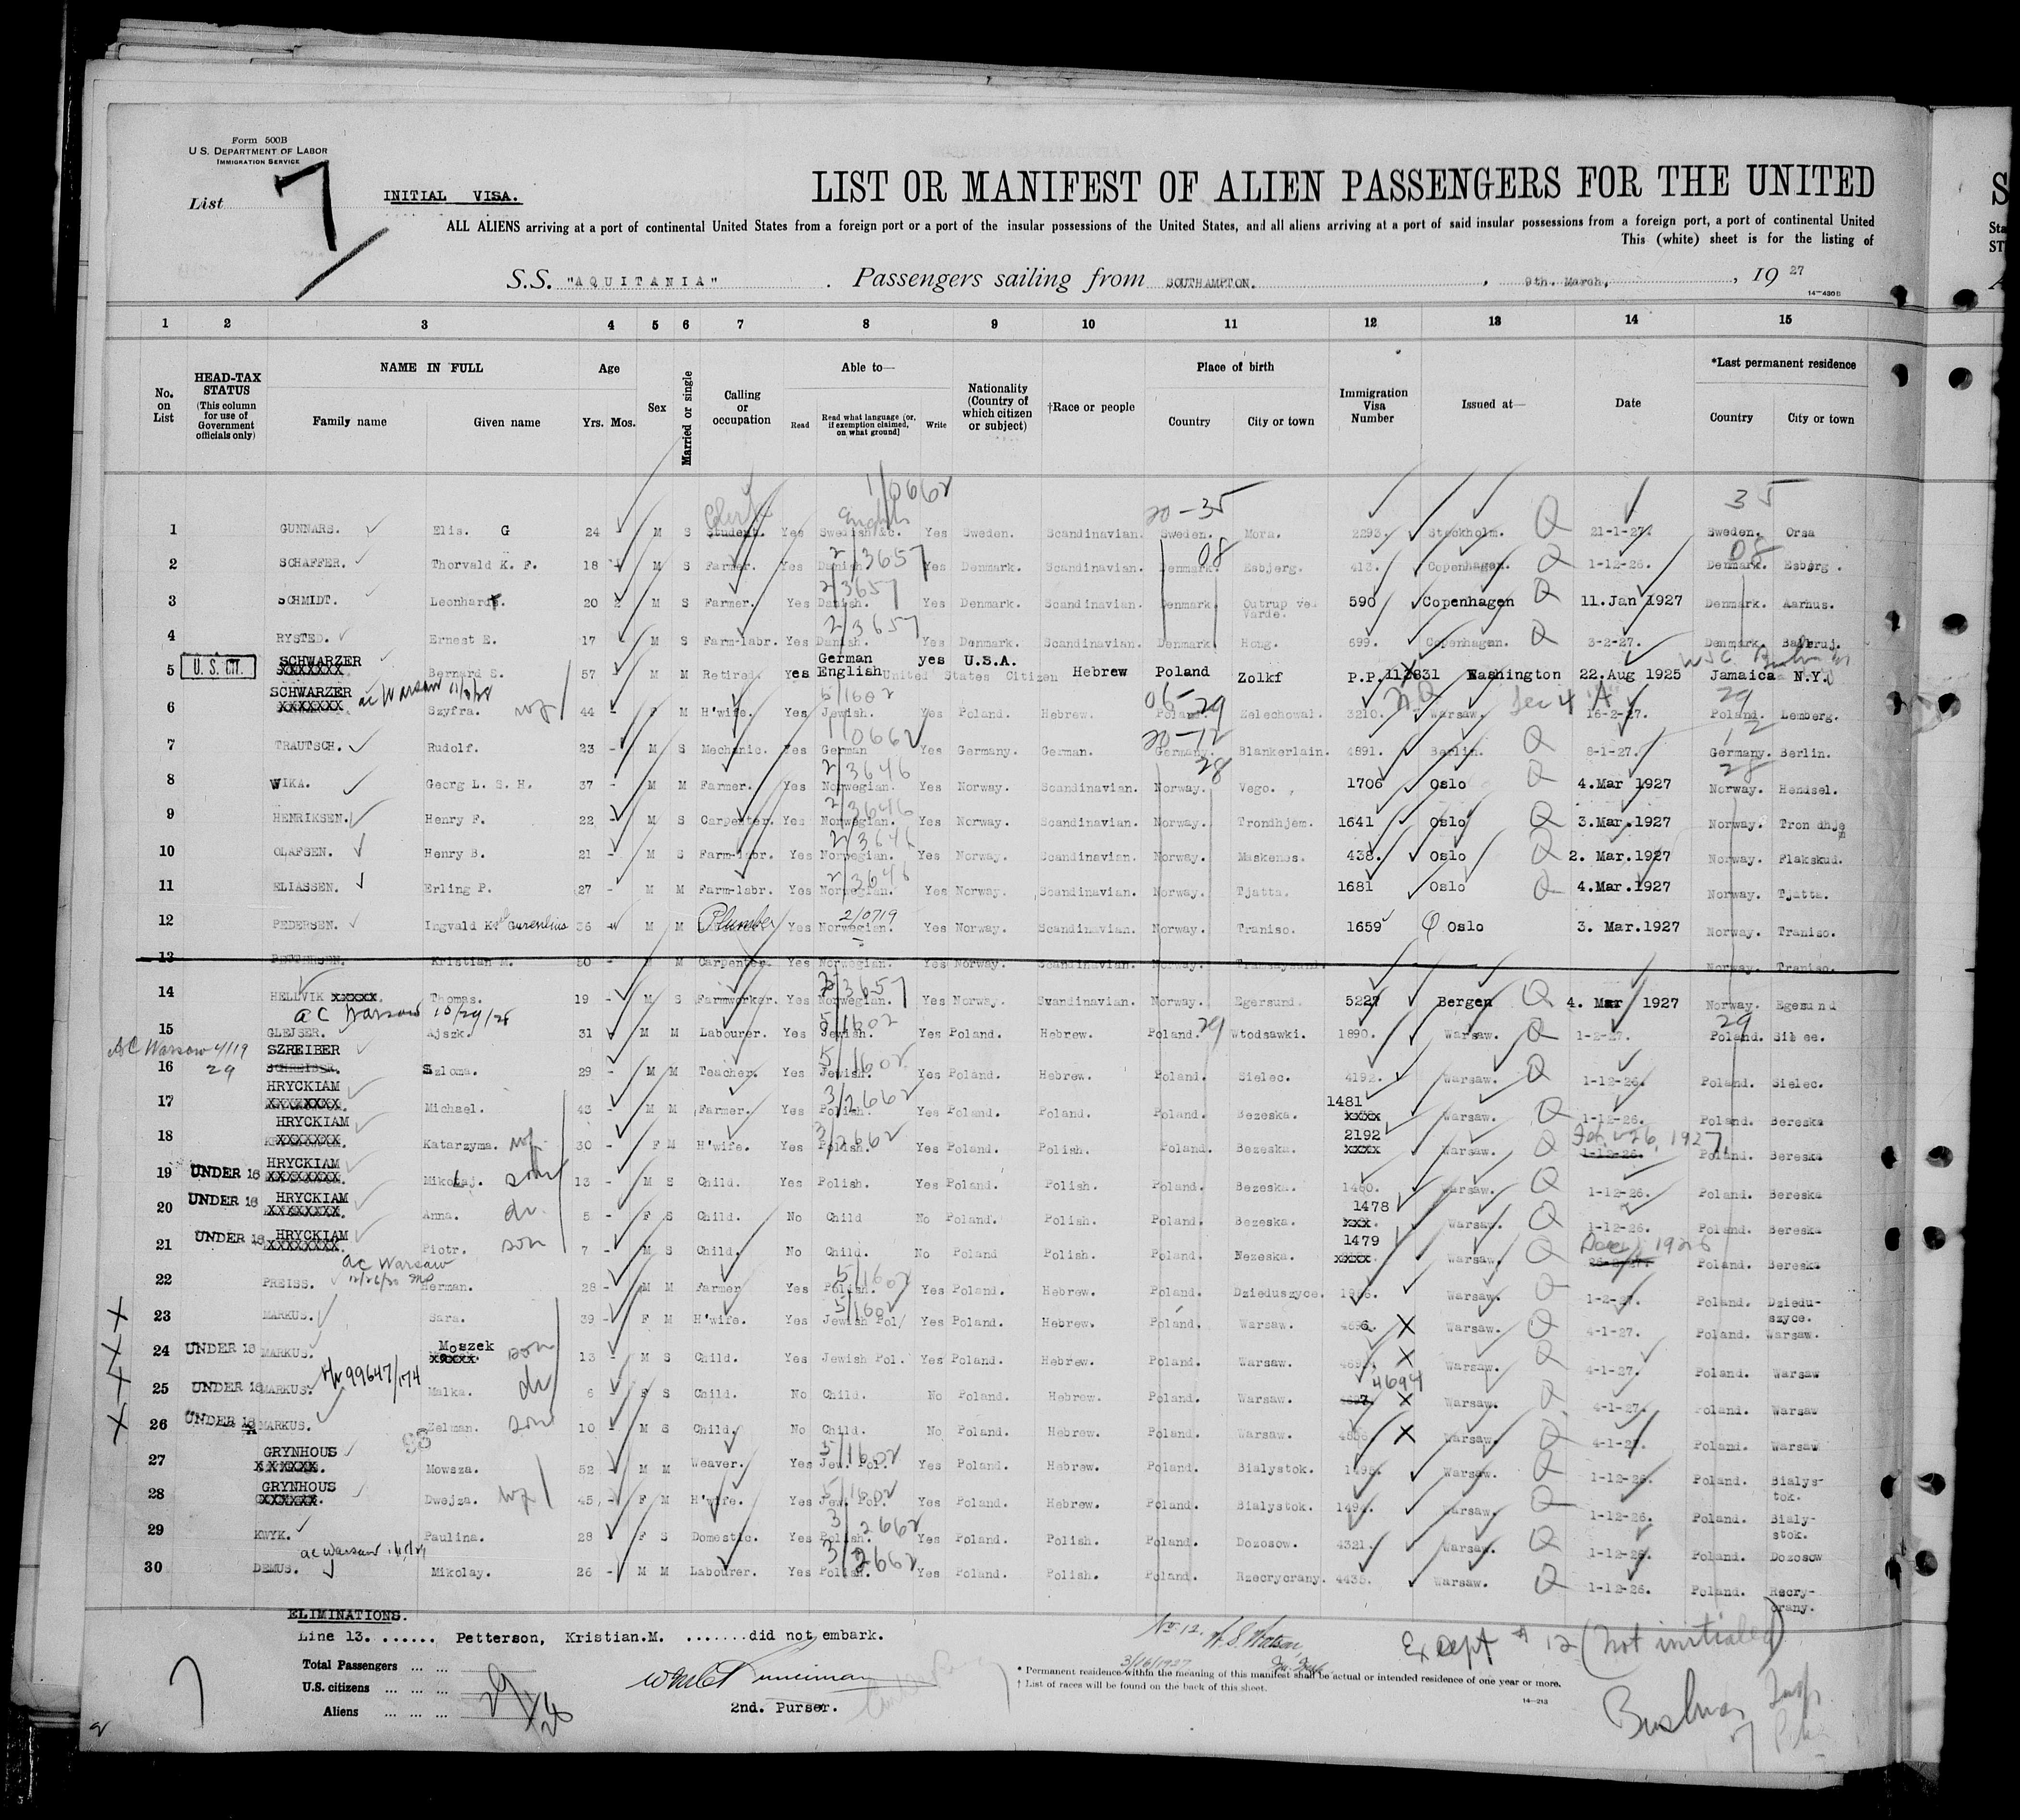 Form 500B
U.S. DEPARTMENT OF LABOR
IMMIGRATION SERVICE
List 7
INITIAL VISA.
LIST OR MANIFEST OF ALIEN PASSENGERS FOR THE UNITED
ALL ALIENS arriving at a port of continental United States from a foreign port or a port of the insular possessions of the United States, and all aliens arriving at a port of said insular possessions from a foreign port, a port of continental United
This (white) sheet is for the listing of
S.S. "AQUITANIA" . Passengers sailing from SOUTHAMPTON. , 9th. March, , 19 27
14—430B
1 2 3 4 5 6 7 8 9 10 11 12 13 14 15
No. on List HEAD-TAX STATUS (This column for use of Government officials only) NAME IN FULL Family name Given name Age Yrs. Mos. Sex Married or single Calling or occupation Able to— Read Read what language (or, if exemption claimed, on what ground) Write Nationality (Country of which citizen or subject) †Race or people Place of birth Country City or town Immigration Visa Number Issued at— Date *Last permanent residence Country City or town
1/0662 20-35 35
1 GUNNARS. Elis. G 24 M S Clerk Student. Yes Swedish &c. English Yes Sweden. Scandinavian. Sweden. Mora. 2293. Stockholm. Q 21-1-27. Sweden. Orsa
2/3657 08 08
2 SCHAFFER. Thorvald K. F. 18 M S Farmer. Yes Danish Yes Denmark. Scandinavian. Denmark. Esbjerg. 413. Copenhagen. Q 1-12-26. Denmark. Esbjerg.
2/3657
3 SCHMIDT. Leonhardt. 20 M S Farmer. Yes Danish. Yes Denmark. Scandinavian. Denmark Outrup ved Varde. 590 Copenhagen Q 11.Jan 1927 Denmark. Aarhus.
2/3657
4 RYSTED. Ernest E. 17 M S Farm-labr. Yes Danish. Yes Denmark. Scandinavian. Denmark Hong. 699. Copenhagen. Q 3-2-27. Denmark.
5 U.S. CIT. SCHWARZER XXXXXXX Bernard S. 57 M M Retired. Yes German English yes U.S.A. United States Citizen Hebrew Poland Zolkf P.P.112831 Washington 22.Aug 1925 Jamaica N.Y.
ac Warsaw 5/1602 06-29 NQ Sec 4 A 29
6 SCHWARZER XXXXXXX Szyfra. wf 44 - F M H'wife. Yes Jewish. Yes Poland. Hebrew. Poland. Zelechowal. 3210. Warsaw. 16-2-27. Poland. Lemberg.
1/0662 20-12 12
7 TRAUTSCH. Rudolf. 23 - M S Mechanic. Yes German Yes Germany. German. Germany. Blankerlain. 4891. Berlin. Q 8-1-27. Germany. Berlin.
2/3646 28 28
8 WIKA. Georg L. S. H. 37 - M M Farmer. Yes Norwegian. Yes Norway. Scandinavian. Norway. Vego. 1706 Oslo Q 4.Mar 1927 Norway. Hendsel.
2/3646
9 HENRIKSEN. Henry F. 22 - M S Carpenter. Yes Norwegian. Yes Norway. Scandinavian. Norway. Trondhjem. 1641 Oslo Q 3.Mar.1927 Norway. Trondhjem
2/3646
10 OLAFSEN. Henry B. 21 - M S Farm-labr. Yes Norwegian. Yes Norway. Scandinavian. Norway. Maskenes. 438. Oslo Q 2. Mar.1927 Norway. Flakskud.
2/3646
11 ELIASSEN. Erling P. 27 - M M Farm-labr. Yes Norwegian. Yes Norway. Scandinavian. Norway. Tjatta. 1681 Oslo Q 4.Mar.1927 Norway. Tjatta.
2/0719
12 PEDERSEN. Ingvald K. 36 M M Plumber Yes Norwegian. Yes Norway. Scandinavian. Norway. Traniso. 1659 Q Oslo 3. Mar.1927 Norway. Traniso.
13 PETTERSEN. Kristian M. 50 M M Carpenter. Yes Norwegian. Yes Norway. Scandinavian. Norway. Norway. Traniso.
2/3657
14 HELLVIK XXXXX. Thomas. 19 - M S Farmworker. Yes Norwegian. Yes Norway. Scandinavian. Norway. Egersund. 5227 Bergen Q 4. Mar 1927 Norway. Egersund
ac Warsaw 10/29/28 5/1602 29 29
15 GLEJSER. Ajszk. 31 M M Labourer. Yes Jewish. Yes Poland. Hebrew. Poland. Wtodsawki. 1890. Warsaw. Q 1-2-27. Poland.
AC Warsaw 4/19 29 5/1602
16 SZREIBER SCHREIBER. Szloma. 29 - M M Teacher. Yes Jewish. Yes Poland. Hebrew. Poland. Sielec. 4192. Warsaw. Q 1-12-26. Poland. Sielec.
3/2662
17 HRYCKIAM XXXXXXXX. Michael. 43 - M M Farmer. Yes Polish. Yes Poland. Poland. Poland. Bezeska. 1481 XXXX Warsaw. Q 1-12-26. Poland. Bereska
3/2662
18 HRYCKIAM XXXXXXX. Katarzyma. wf 30 - F M H'wife. Yes Polish. Yes Poland. Polish. Poland. Bezeska. 2192 XXXX Warsaw. Q Feb. 26, 1927. 1-12-26. Poland. Bereska
19 UNDER 16 HRYCKIAM XXXXXXXX. Mikolaj. son 13 - M S Child. Yes Polish. Yes Poland. Polish. Poland. Bezeska. 1480. Warsaw. Q 1-12-26. Poland. Bereska
20 UNDER 16 HRYCKIAM XXXXXXXX. Anna. da. 5 - F S Child. No Child No Poland. Polish. Poland. Bezeska. 1478 XXX. Warsaw. Q 1-12-26. Poland. Bereska
21 UNDER 16 HRYCKIAM XXXXXXXX. Piotr. son 7 - M S Child. No Child. No Poland Polish. Poland. Bezeska. 1479 XXXX. Warsaw. Q Dec 1, 1926 Poland. Bereska
ac Warsaw 5/1602
22 PREISS. Herman. 28 - M M Farmer Yes Polish. Yes Poland. Hebrew. Poland. Dzieduszyce. Warsaw. Q 1-2-27. Poland. Dziedu-szyce.
5/1602
X 23 MARKUS. Sara. 39 - F M H'wife. Yes Jewish Pol/ Yes Poland. Hebrew. Poland. Warsaw. 4696. X Warsaw. Q 4-1-27. Poland. Warsaw.
X 24 UNDER 16 MARKUS. Moszek XXXXX. son 13 - M S Child. Yes Jewish Pol. Yes Poland. Hebrew. Poland. Warsaw. X Warsaw. Q 4-1-27. Poland. Warsaw
X 25 UNDER 16 MARKUS. Malka. da 6 - F S Child. No Child. No Poland. Hebrew. Poland. Warsaw. 4694 X Warsaw. Q 4-1-27. Poland. Warsaw
X 26 UNDER 16 MARKUS. Zelman. son 10 - M S Child. No Child. No Poland. Hebrew. Poland. Warsaw. X Warsaw. Q 4-1-27. Poland. Warsaw
5/1602
27 GRYNHOUS XXXXXX. Mowsza. 52 - M M Weaver. Yes Jew. Pol. Yes Poland. Hebrew. Poland. Bialystok. 1495. Warsaw. Q 1-12-26. Poland. Bialys-tok.
5/1602
28 GRYNHOUS XXXXXX. Dwejza. wf 45 - F M H'wife. Yes Jew. Pol. Yes Poland. Hebrew. Poland. Bialystok. 1494. Warsaw. Q 1-12-26. Poland. Bialy-stok.
3/2662
29 KWYK. Paulina. 28 F S Domestic. Yes Polish. Yes Poland. Polish. Poland. Dozosow. 4321. Warsaw. Q 1-12-26. Poland. Dozosow
ac Warsaw 3/2662
30 DEMUS. Mikolay. 26 - M M Labourer. Yes Polish. Yes Poland. Polish. Poland. Rzecrycrany. 4435. Warsaw. Q 1-12-26. Poland. Recry-crany.
ELIMINATIONS.
Line 13. ...... Petterson, Kristian.M. .......did not embark.
No 12. 3/16/1927
Except # 12 (not initialed)
Total Passengers ... ... 29
U.S. citizens ... ... ...
Aliens ... ... ...
2nd. Purser.
* Permanent residence within the meaning of this manifest shall be actual or intended residence of one year or more.
† List of races will be found on the back of this sheet.
14—213